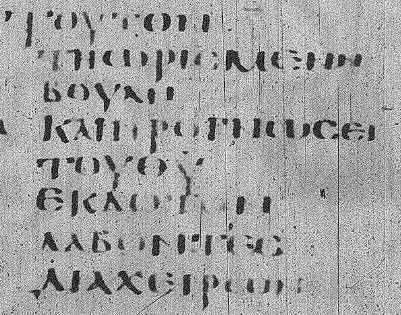 ΤΟΥΤΟΝ
ΤΗΩΡΙϹΜΕΝΗ
ΒΟΥΛΗ
ΚΑΙΠΡΟΓΝΩϹΕΙ
ΤΟΥΘΥ
ΕΚΔΟΤΟΝ
ΛΑΒΟΝΤΕϹ
ΔΙΑΧΕΙΡΩΝ